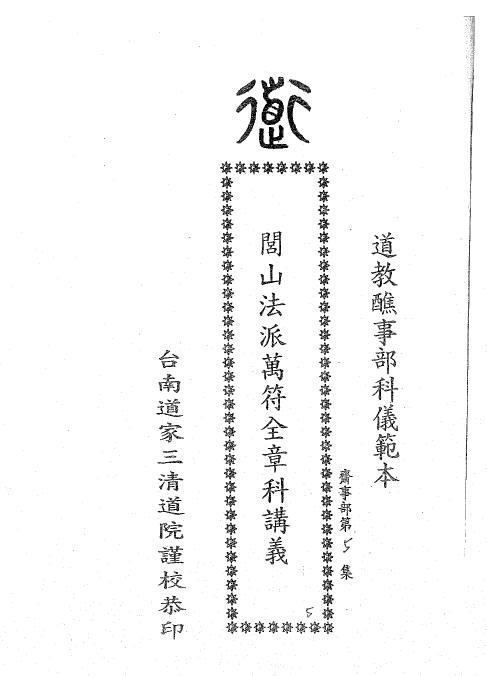 道
道教醮事部科儀範本
齋事部第5集
閭山法派萬符全章科講義
5
台南道家三清道院謹校恭印